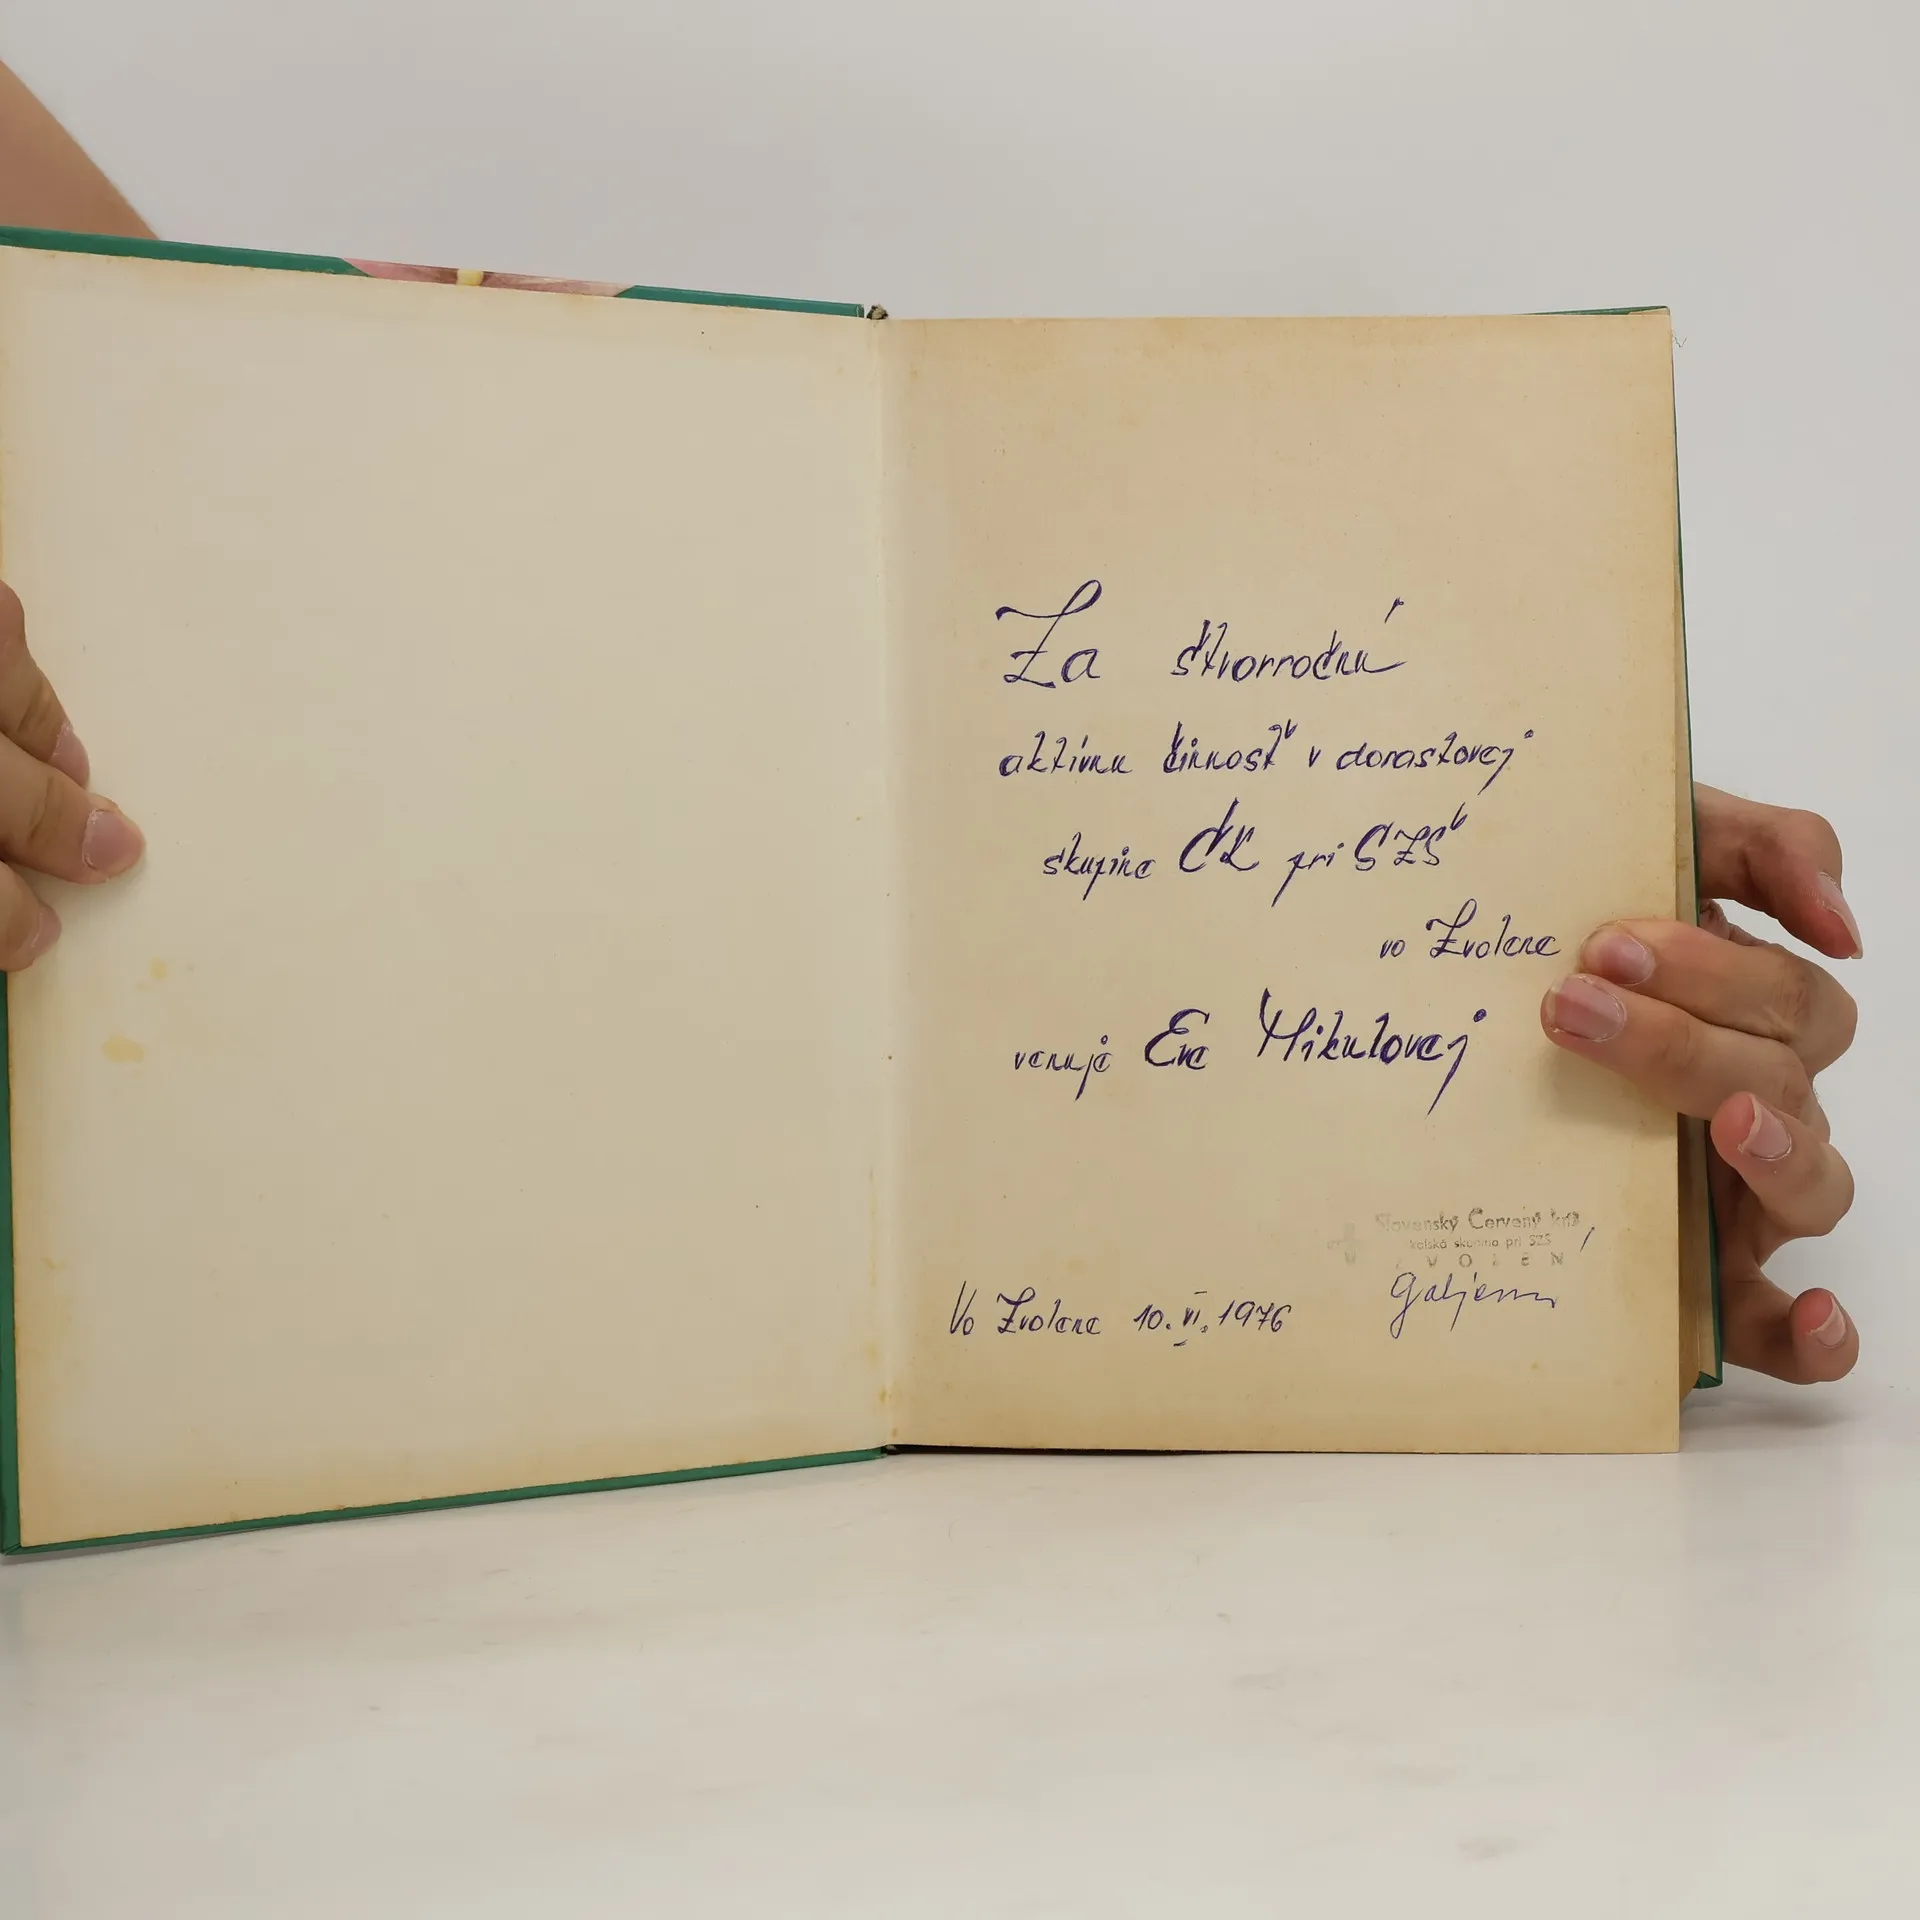 Za štvorročnú
aktívnu činnosť v dorastovej
skupine ČK pri SZŠ
vo Zvolene
venuje Eve Mikulovej
Slovenský Červený kríž
skupina pri SZŠ
ZVOLEN
Vo Zvolene 10. VI. 1976